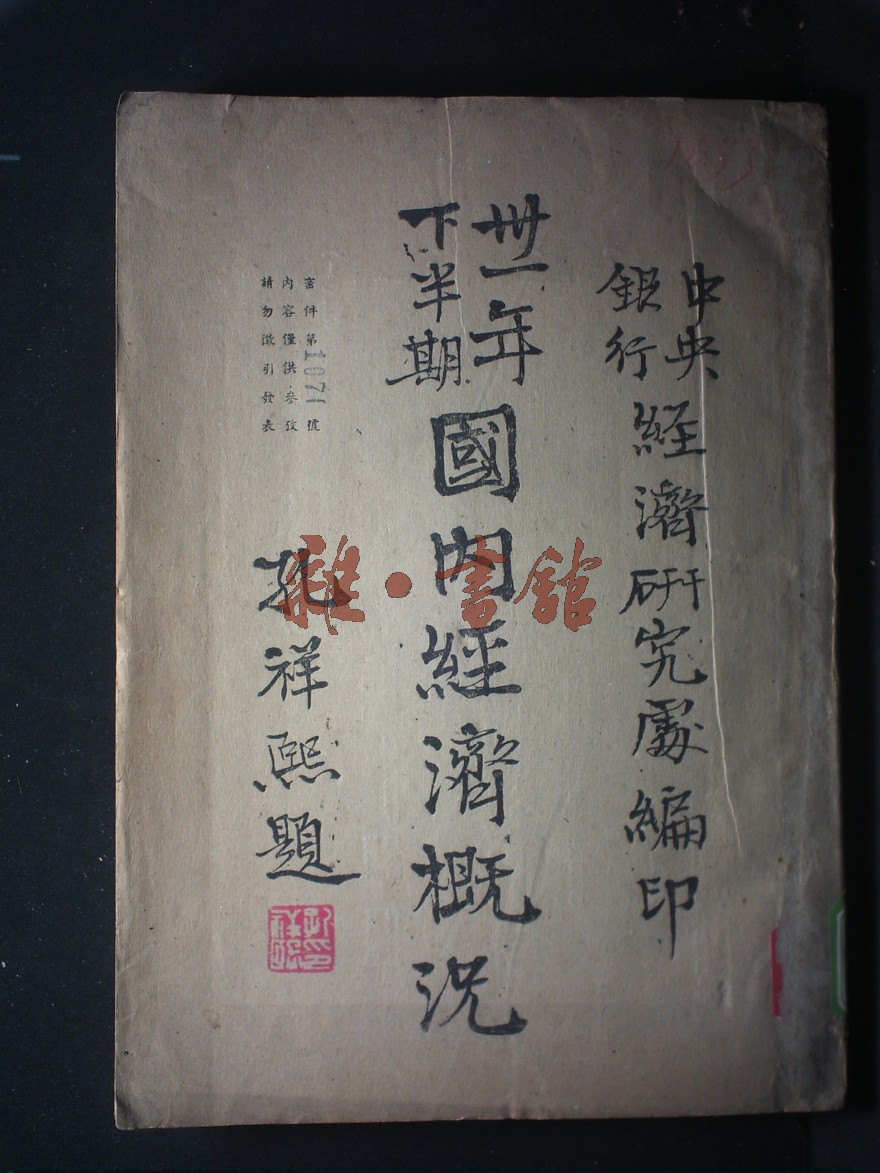 中央銀行經濟研究處編印
卅一年下半期國內經濟概況
密件第1071號
內容僅供參攷
請勿徵引發表
孔祥熙題
雜·書館